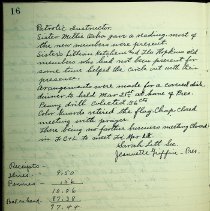 16
Patriotic Instructor.
Sister Millie Rebo gave a reading, most of
the new members were present.
Sisters Lilian Katalene and Ila Hopkins old
members who had not been present for
some time helped the circle out with their
presence.
Arrangements were made for a covered dish
dinner to held Mar 25th at home of Pres.
Penny drill collected 56 cts
Color bearers retired the flag Chap. closed
meeting with prayer.
There being no further business meeting closed
in F.C.L. to meet Mar 18
Sarah Lett Sec.
Jeannette Griffin - Pres.
Receipts
Dues 9.50
Pennies .56
10.06
Bal on hand 87.38
97.44